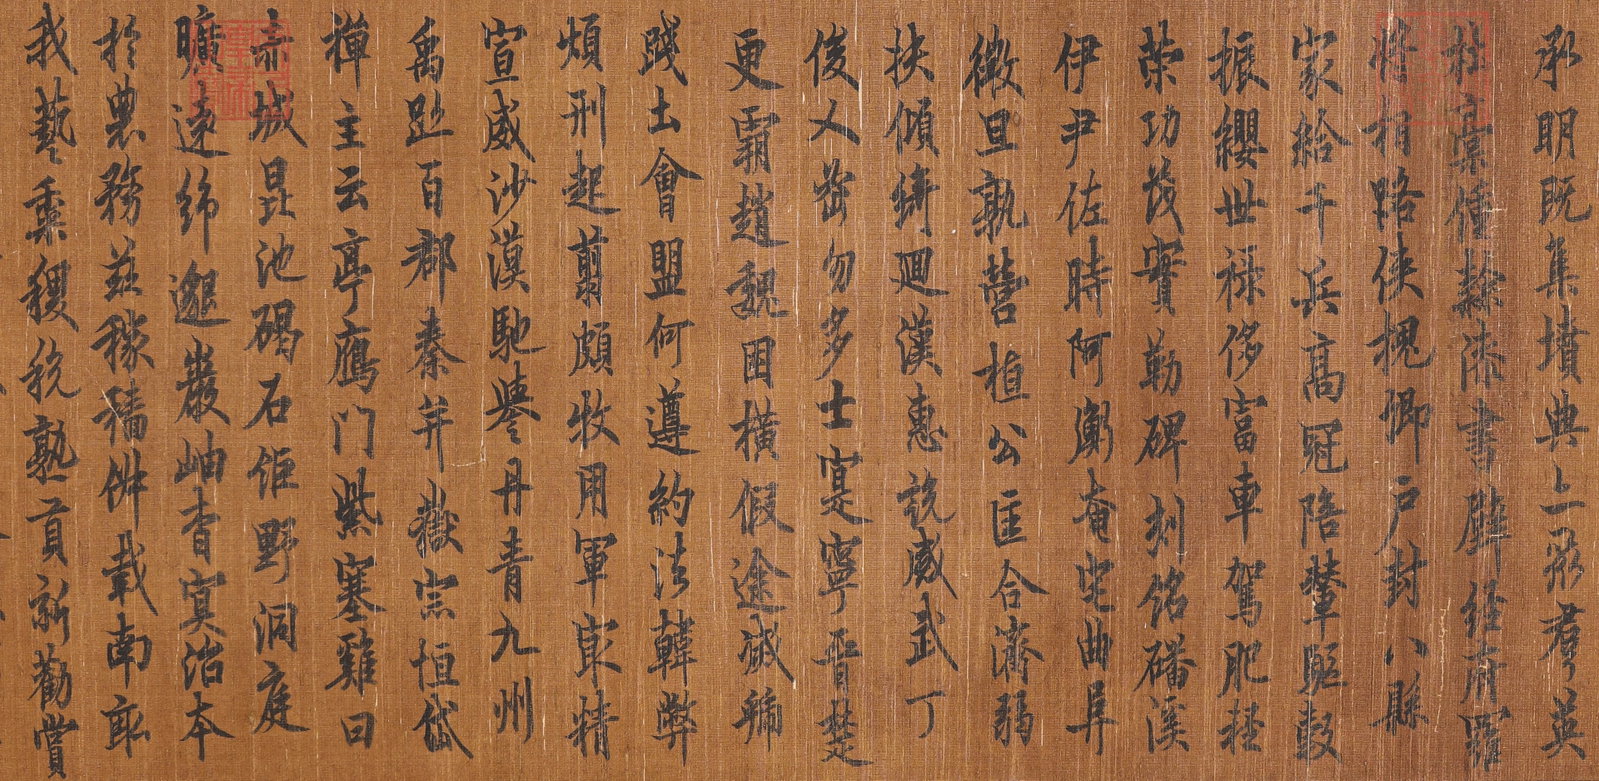 承明既集墳典亦聚群英
杜稾鍾隸漆書壁經府羅
將相路俠槐卿戶封八縣
家給千兵高冠陪輦驅轂
振纓世祿侈富車駕肥輕
策功茂實勒碑刻銘磻溪
伊尹佐時阿衡奄宅曲阜
微旦孰營桓公匡合濟弱
扶傾綺迴漢惠說感武丁
俊乂密勿多士寔寧晉楚
更霸趙魏困橫假途滅虢
踐土會盟何遵約法韓弊
煩刑起翦頗牧用軍最精
宣威沙漠馳譽丹青九州
禹跡百郡秦并嶽宗恒岱
禪主云亭鴈門紫塞雞田
赤城昆池碣石鉅野洞庭
曠遠綿邈巖岫杳冥治本
於農務茲稼穡俶載南畝
我藝黍稷稅熟貢新勸賞